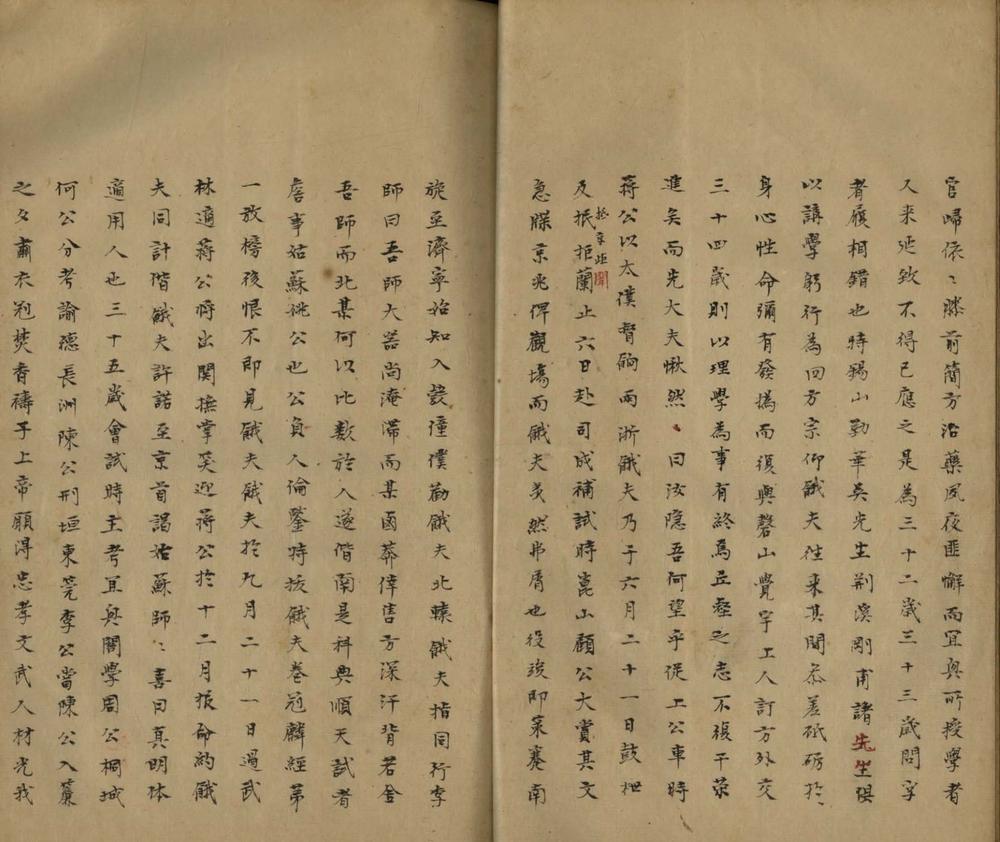 官歸依〻膝前簡方治藥夙夜匪懈而宜興所授學者
又来延致不得已應之是為三十二歲三十三歲問字
者履相錯也時錫山勤華吳先生荆溪剛甫諸先生俱
以講學躬行為四方宗仰餓夫往来其間恭差砥礪於
身心性命彌有發撝而復與磬山覺宇上人訂方外交
三十四歲則以理學為事有終焉丘壑之志不復干榮
進矣而先大夫愀然、曰汝隱吾何望乎促上公車時
蔣公以太僕督餉兩浙餓夫乃于六月二十一日鼓枻
及抵拒蘭止六日赴司成補試時崑山顧公大賞其文
急牒京兆俾觀塲而餓夫炎然弗屑也役竣即策蹇南
旋至濟寧始知入彀僮僕勸餓夫北轅餓夫指同行李
師曰吾師大器尚淹滯而某鹵莽倖售方深汗背若舍
吾師而北某何以比数於人遂偕南是科典順天試者
詹事姑蘇姚公也公負人倫鑒特拔餓夫卷冠麟經第
一放榜後恨不即見餓夫餓夫於九月二十一日過武
林適蔣公將出関撫掌笑迎蔣公於十二月報命約餓
夫同計偕餓夫許諾至京首謁姑蘇師〻喜曰真明体
適用人也三十五歲會試時主考宜興閣學周公桐城
何公分考諭德長洲陳公刑垣東莞李公當陳公入簾
之夕肅衣冠焚香禱于上帝願得忠孝文武人材光我